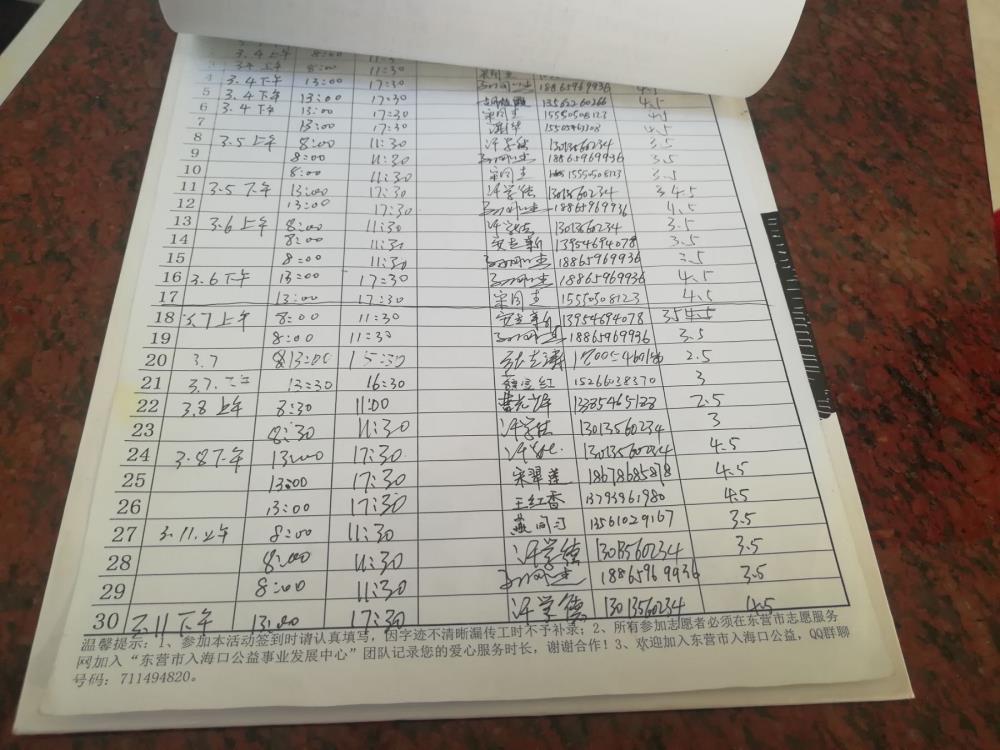 3.4上午 8:00 11:30
3 3.4上午 8:00 11:30
4 3.4下午 13:00 17:30 18865969936 4.5
5 3.4下午 13:00 17:30 13562260266 4.5
6 3.4下午 13:00 17:30 宋同圭 15550508123 4.5
7 13:00 17:30 4.5
8 3.5上午 8:00 11:30 许学德 13013560234 3.5
9 8:00 11:30 18865969936 3.5
10 8:00 11:30 宋同圭 15550508123 3.5
11 3.5下午 13:00 17:30 许学德 13013560234 4.5
12 13:00 17:30 18865969936 4.5
13 3.6上午 8:00 11:30 许学德 13013560234 3.5
14 8:00 11:30 13954694078 3.5
15 8:00 11:30 18865969936 3.5
16 3.6下午 13:00 17:30 18865969936 4.5
17 13:00 17:30 宋同圭 15550508123 4.5
18 3.7上午 8:00 11:30 13954694078 3.5
19 8:00 11:30 18865969936 3.5
20 3.7 13:00 15:30 2.5
21 3.7. 13:30 16:30 15266038370 3
22 3.8上午 8:30 11:00 2.5
23 8:30 11:30 许学德 13013560234 3
24 3.8下午 13:00 17:30 13013560234 4.5
25 13:00 17:30 宋翠莲 18678685878 4.5
26 13:00 17:30 王红香 13793961980 4.5
27 3.11.上午 8:00 11:30 13561029167 3.5
28 8:00 11:30 许学德 13013560234 3.5
29 8:00 11:30 18865969936 3.5
30 3.11下午 13:00 17:30 许学德 13013560234 4.5
温馨提示：1、参加本活动签到时请认真填写，因字迹不清晰漏传工时不予补录；2、所有参加志愿者必须在东营市志愿服务
网加入“东营市入海口公益事业发展中心”团队记录您的爱心服务时长，谢谢合作！3、欢迎加入东营市入海口公益，QQ群聊
号码：711494820。